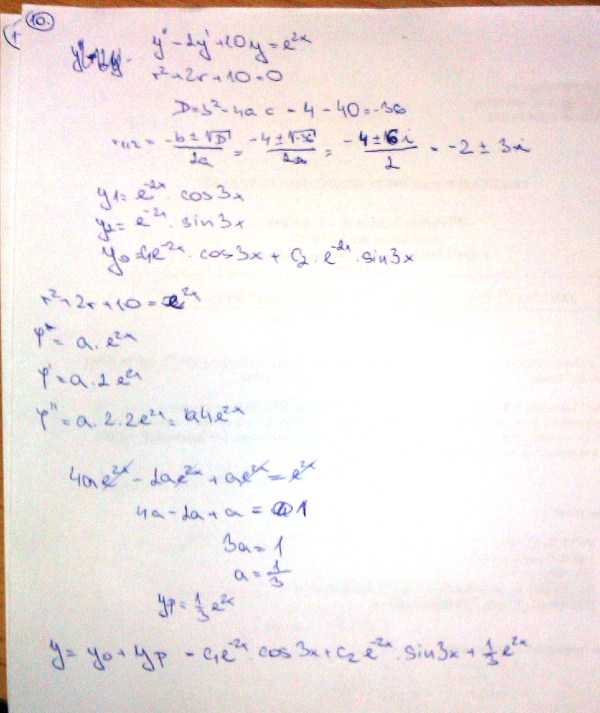 10.
y'' - 2y' + 10y = e^2x
r² + 2r + 10 = 0
D = b² - 4ac - 4 - 40 = -36
r1,2 = (-b ± √D)/2a = (-4 ± √-36)/2a = (-4 ± 6i)/2 = -2 ± 3i
y1 = e^-2x · cos3x
y2 = e^-2x · sin3x
y0 = c1e^-2x · cos3x + c2 · e^-2x · sin3x
r² + 2r + 10 = e^2x
φ = a · e^2x
φ' = a · 2e^2x
φ'' = a · 2 · 2e^2x = a4e^2x
4ae^2x - 2ae^2x + ae^2x = e^2x
4a - 2a + a = 1
3a = 1
a = 1/3
yp = 1/3 e^2x
y = y0 + yp - c1e^-2x · cos3x + c2e^-2x · sin3x + 1/3 e^2x